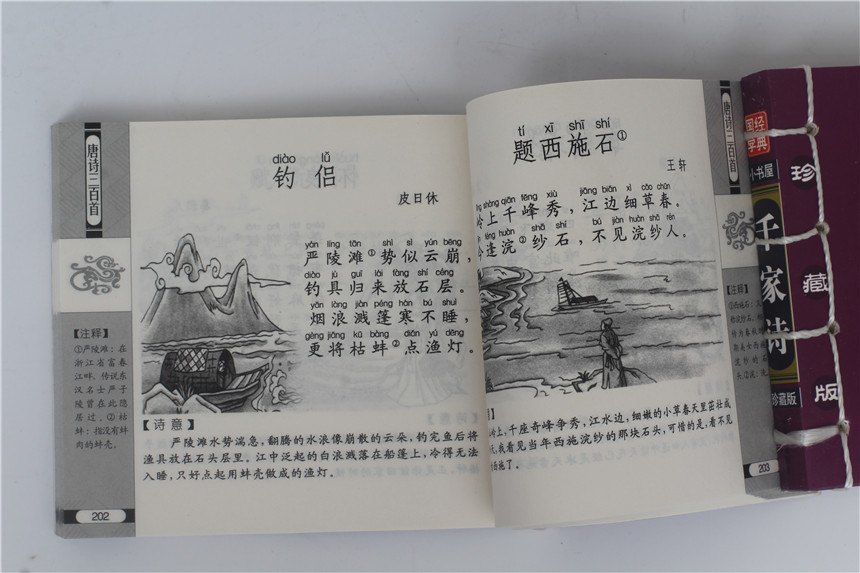 唐诗三百首
diào lǚ
钓侣
皮日休
yán líng tān shì sì yún bēng
严陵滩①势似云崩，
diào jù guī lái fàng shí céng
钓具归来放石层。
yān làng jiàn péng hán bú shuì
烟浪溅篷寒不睡，
gèng jiāng kū bàng diǎn yú dēng
更将枯蚌②点渔灯。
【注释】
①严陵滩：在
浙江省富春
江畔，传说东
汉名士严子
陵曾在此隐
居过。②枯
蚌：指没有蚌
肉的蚌壳。
【诗意】
严陵滩水势湍急，翻腾的水浪像崩散的云朵。钓完鱼后将
渔具放在石头层里。江中泛起的白浪溅落在船篷上，冷得无法
入睡，只好点起用蚌壳做成的渔灯。
202
唐诗三百首
tí xī shī shí
题西施石①
王轩
shàng qiān fēng xiù jiāng biān xì cǎo chūn
岭上千峰秀，江边细草春。
féng huàn shā shí bú jiàn huàn shā rén
今逢浣②纱石，不见浣纱人。
【注释】
岭上，千座奇峰争秀，江水边，细嫩的小草春天里茁壮成
我看见当年西施浣纱的那块石头，可惜的是，看不见
西施了。
203
国学经典
小书屋
千家诗
珍藏版
珍藏版